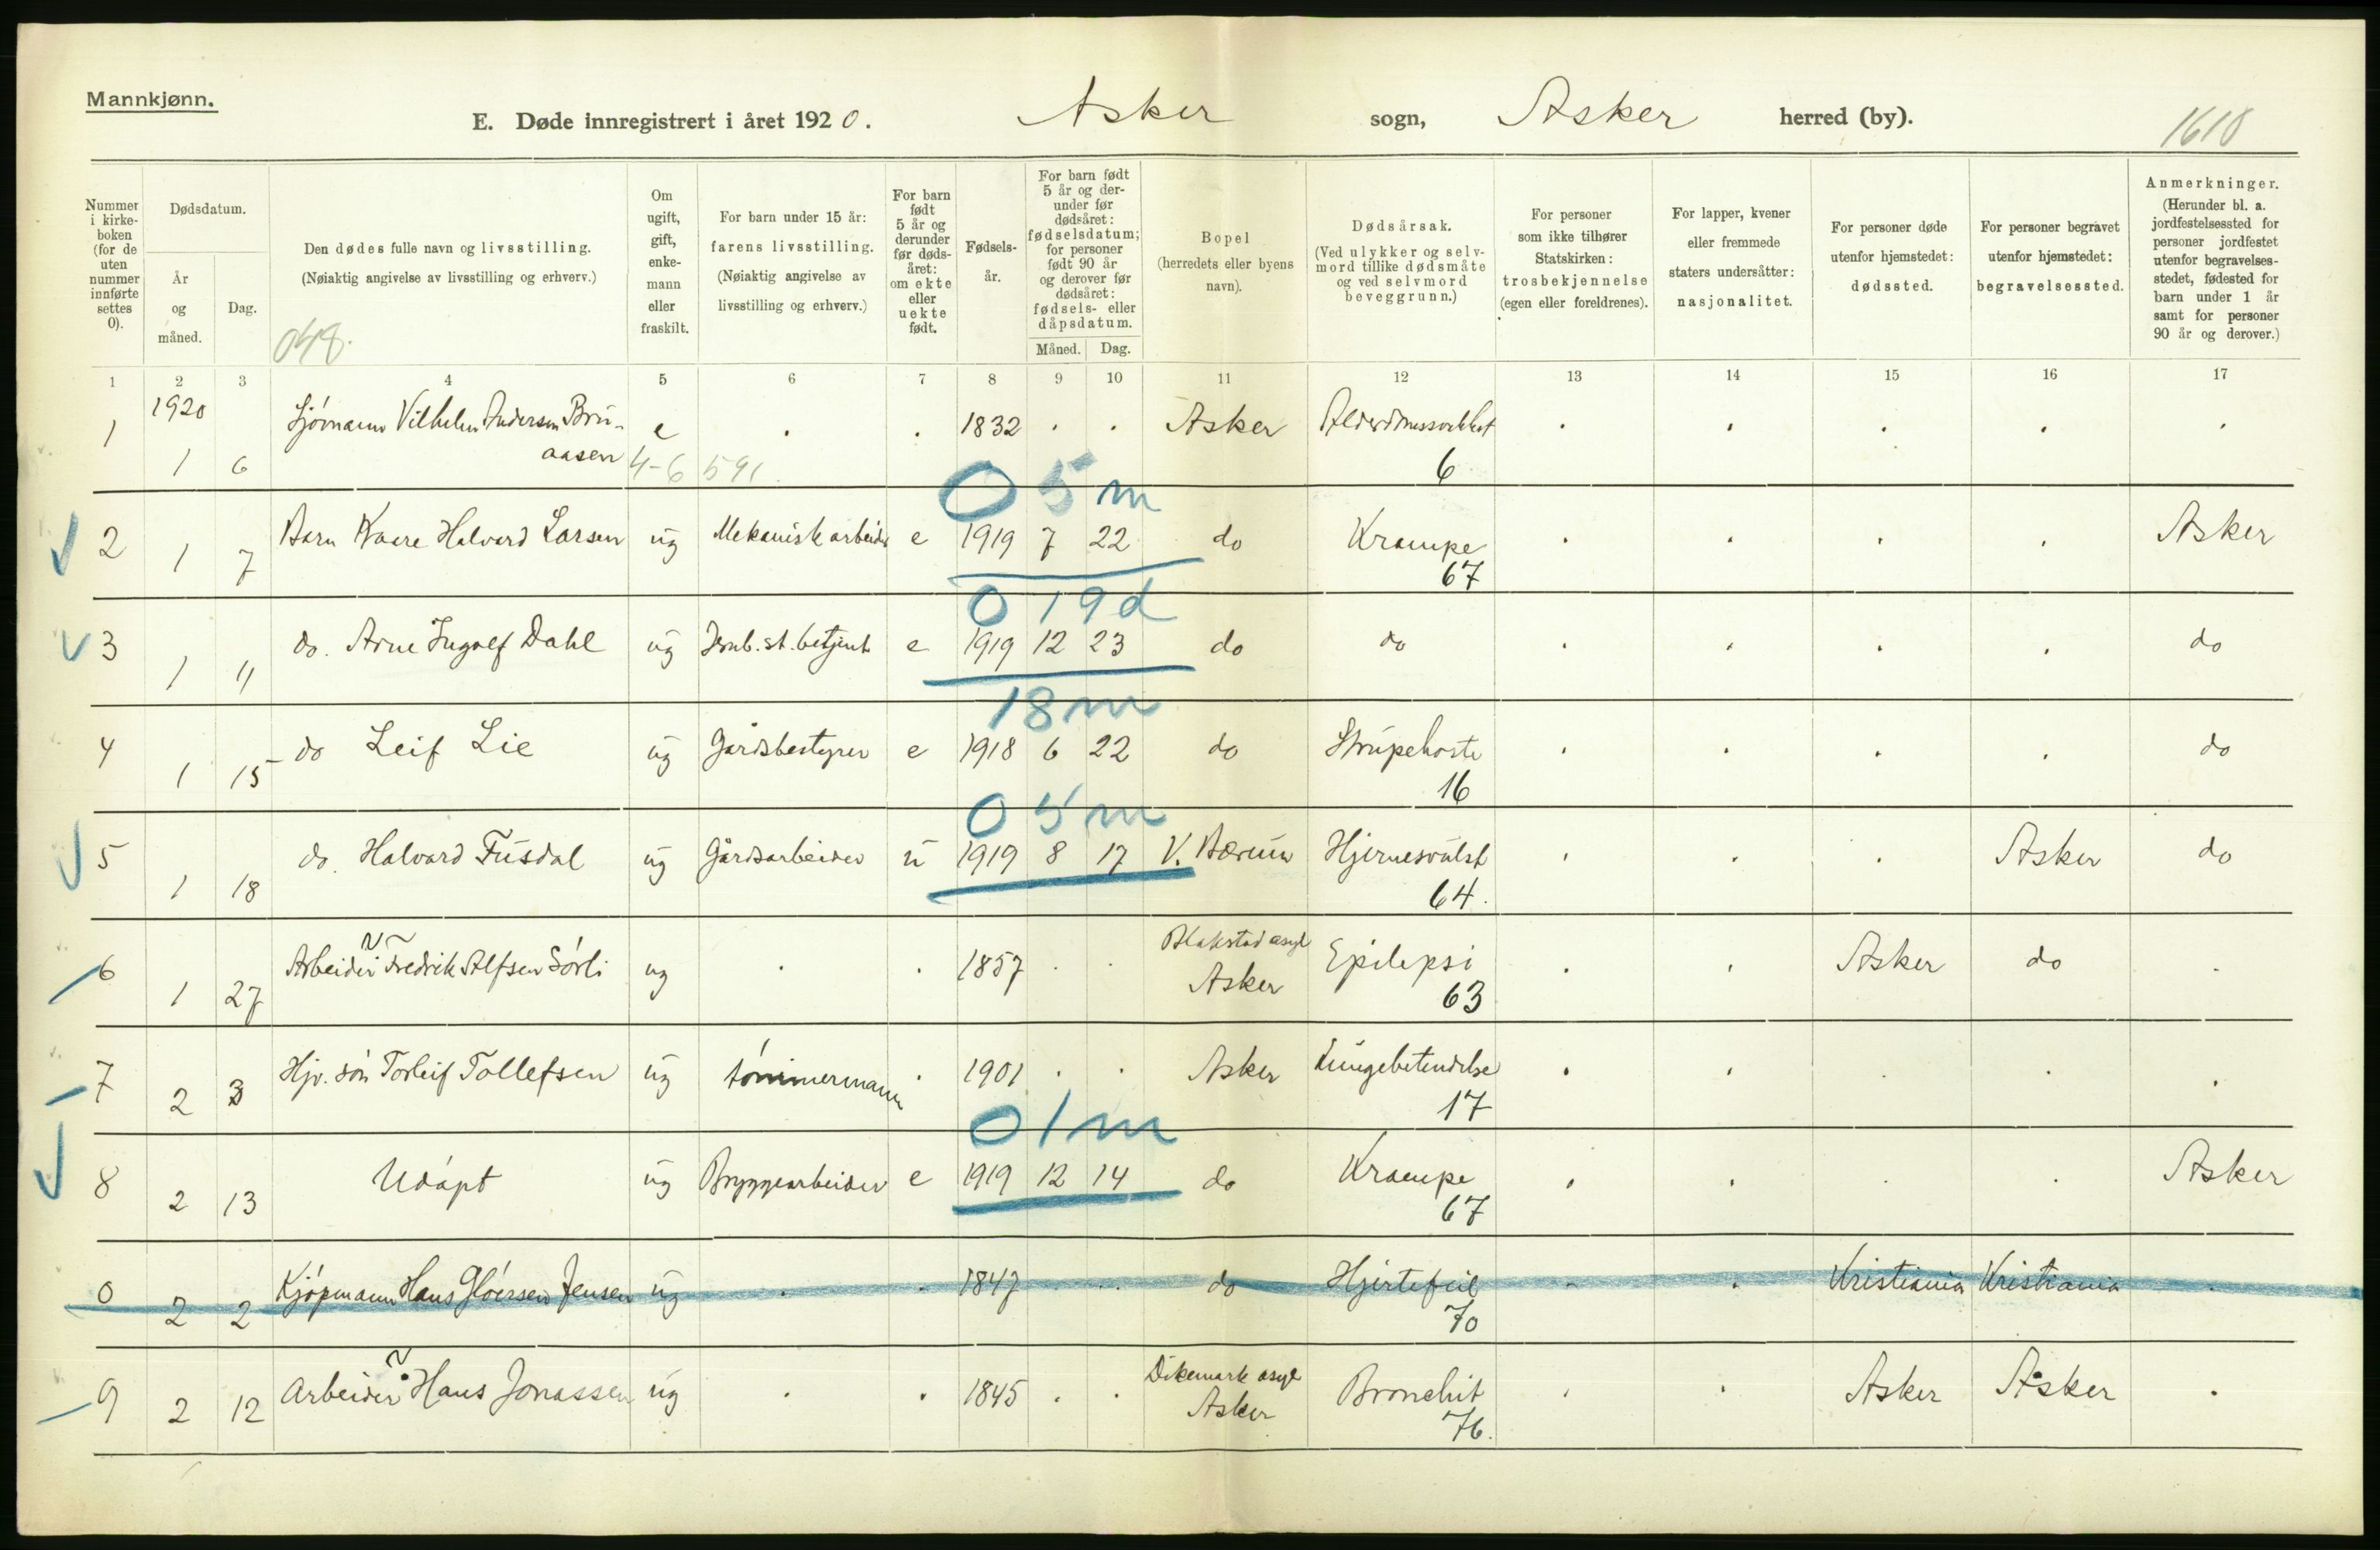 Mannkjønn.
E. Døde innregistrert i året 1920. Asker sogn, Asker herred (by). 1618
Nummer i kirkeboken (for de uten nummer innførte settes 0).
Dødsdatum.
År og måned.
Dag.
Den dødes fulle navn og livsstilling.
(Nøiaktig angivelse av livsstilling og erhverv.)
048.
Om ugift, gift, enkemann eller fraskilt.
For barn under 15 år: farens livsstilling.
(Nøiaktig angivelse av livsstilling og erhverv.)
For barn født 5 år og derunder før dødsåret: om ekte eller uekte født.
Fødselsår.
For barn født 5 år og derunder før dødsåret: fødselsdatum; for personer født 90 år og derover før dødsåret: fødsels- eller dåpsdatum.
Måned. Dag.
Bopel (herredets eller byens navn).
Dødsårsak.
(Ved ulykker og selvmord tillike dødsmåte og ved selvmord beveggrunn.)
For personer som ikke tilhører Statskirken: trosbekjennelse (egen eller foreldrenes).
For lapper, kvener eller fremmede staters undersåtter: nasjonalitet.
For personer døde utenfor hjemstedet: dødssted.
For personer begravet utenfor hjemstedet: begravelsessted.
Anmerkninger.
(Herunder bl. a. jordfestelsessted for personer jordfestet utenfor begravelsesstedet, fødested for barn under 1 år samt for personer 90 år og derover.)
1 2 3 4 5 6 7 8 9 10 11 12 13 14 15 16 17
1920
1 1 6 Sjømann Vilhelm Andersen Bruaasen e . . 1832 . . Asker Alderdomssvakhet . . . . .
4-6 591. 6
0 5 m
2 1 7 Barn Kaare Halvard Larsen ug Mekanisk arbeider e 1919 7 22 do Krampe . . . . Asker
67
0 19 d
3 1 11 do. Arne Ingolf Dahl ug Jernb. st. betjent e 1919 12 23 do do . . . . do
18 m
4 1 15 do Leif Lie ug Gårdsbestyrer e 1918 6 22 do Strupehoste . . . . do
16
0 5 m
5 1 18 do. Halvard Fusdal ug Gårdsarbeider u 1919 8 17 V. Bærum Hjernesvulst . . . Asker do
64.
6 1 27 Arbeider Fredrik Alfsen Sørli ug . . 1857 . . Blakstad asyl Asker Epilepsi . . Asker do .
63
7 2 3 Hjv. søn Torleif Tollefsen ug tømmermann . 1901 . . Asker Lungebetendelse . . . . .
17
0 1 m
8 2 13 Udøpt ug Bryggearbeider e 1919 12 14 do Krampe . . . . Asker
67
0 2 2 Kjøpmann Hans Gløersen Jensen ug . . 1847 . . do Hjertefeil . . Kristiania Kristiania .
70
9 2 12 Arbeider Hans Jonassen ug . . 1845 . . Dikemark asyl Asker Bronchit . . Asker Asker .
76.